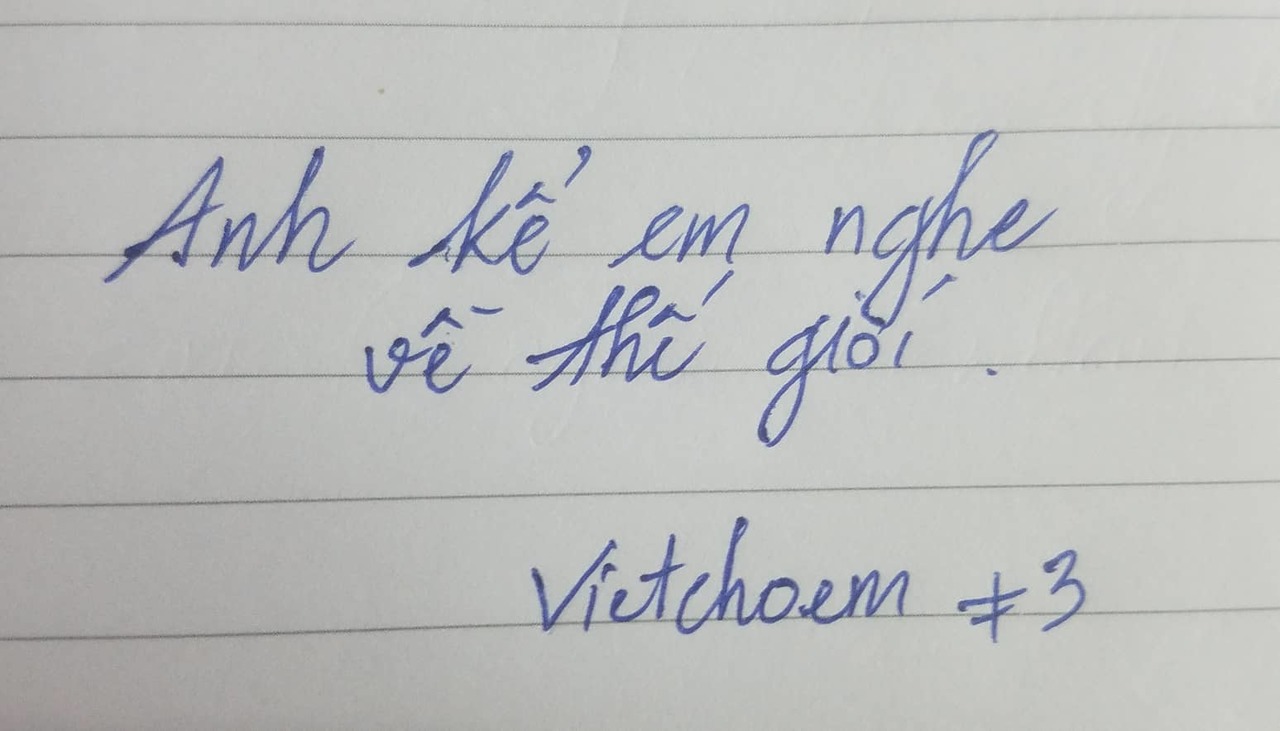 Anh kể em nghe
về thế giới.
Vietchoem #3